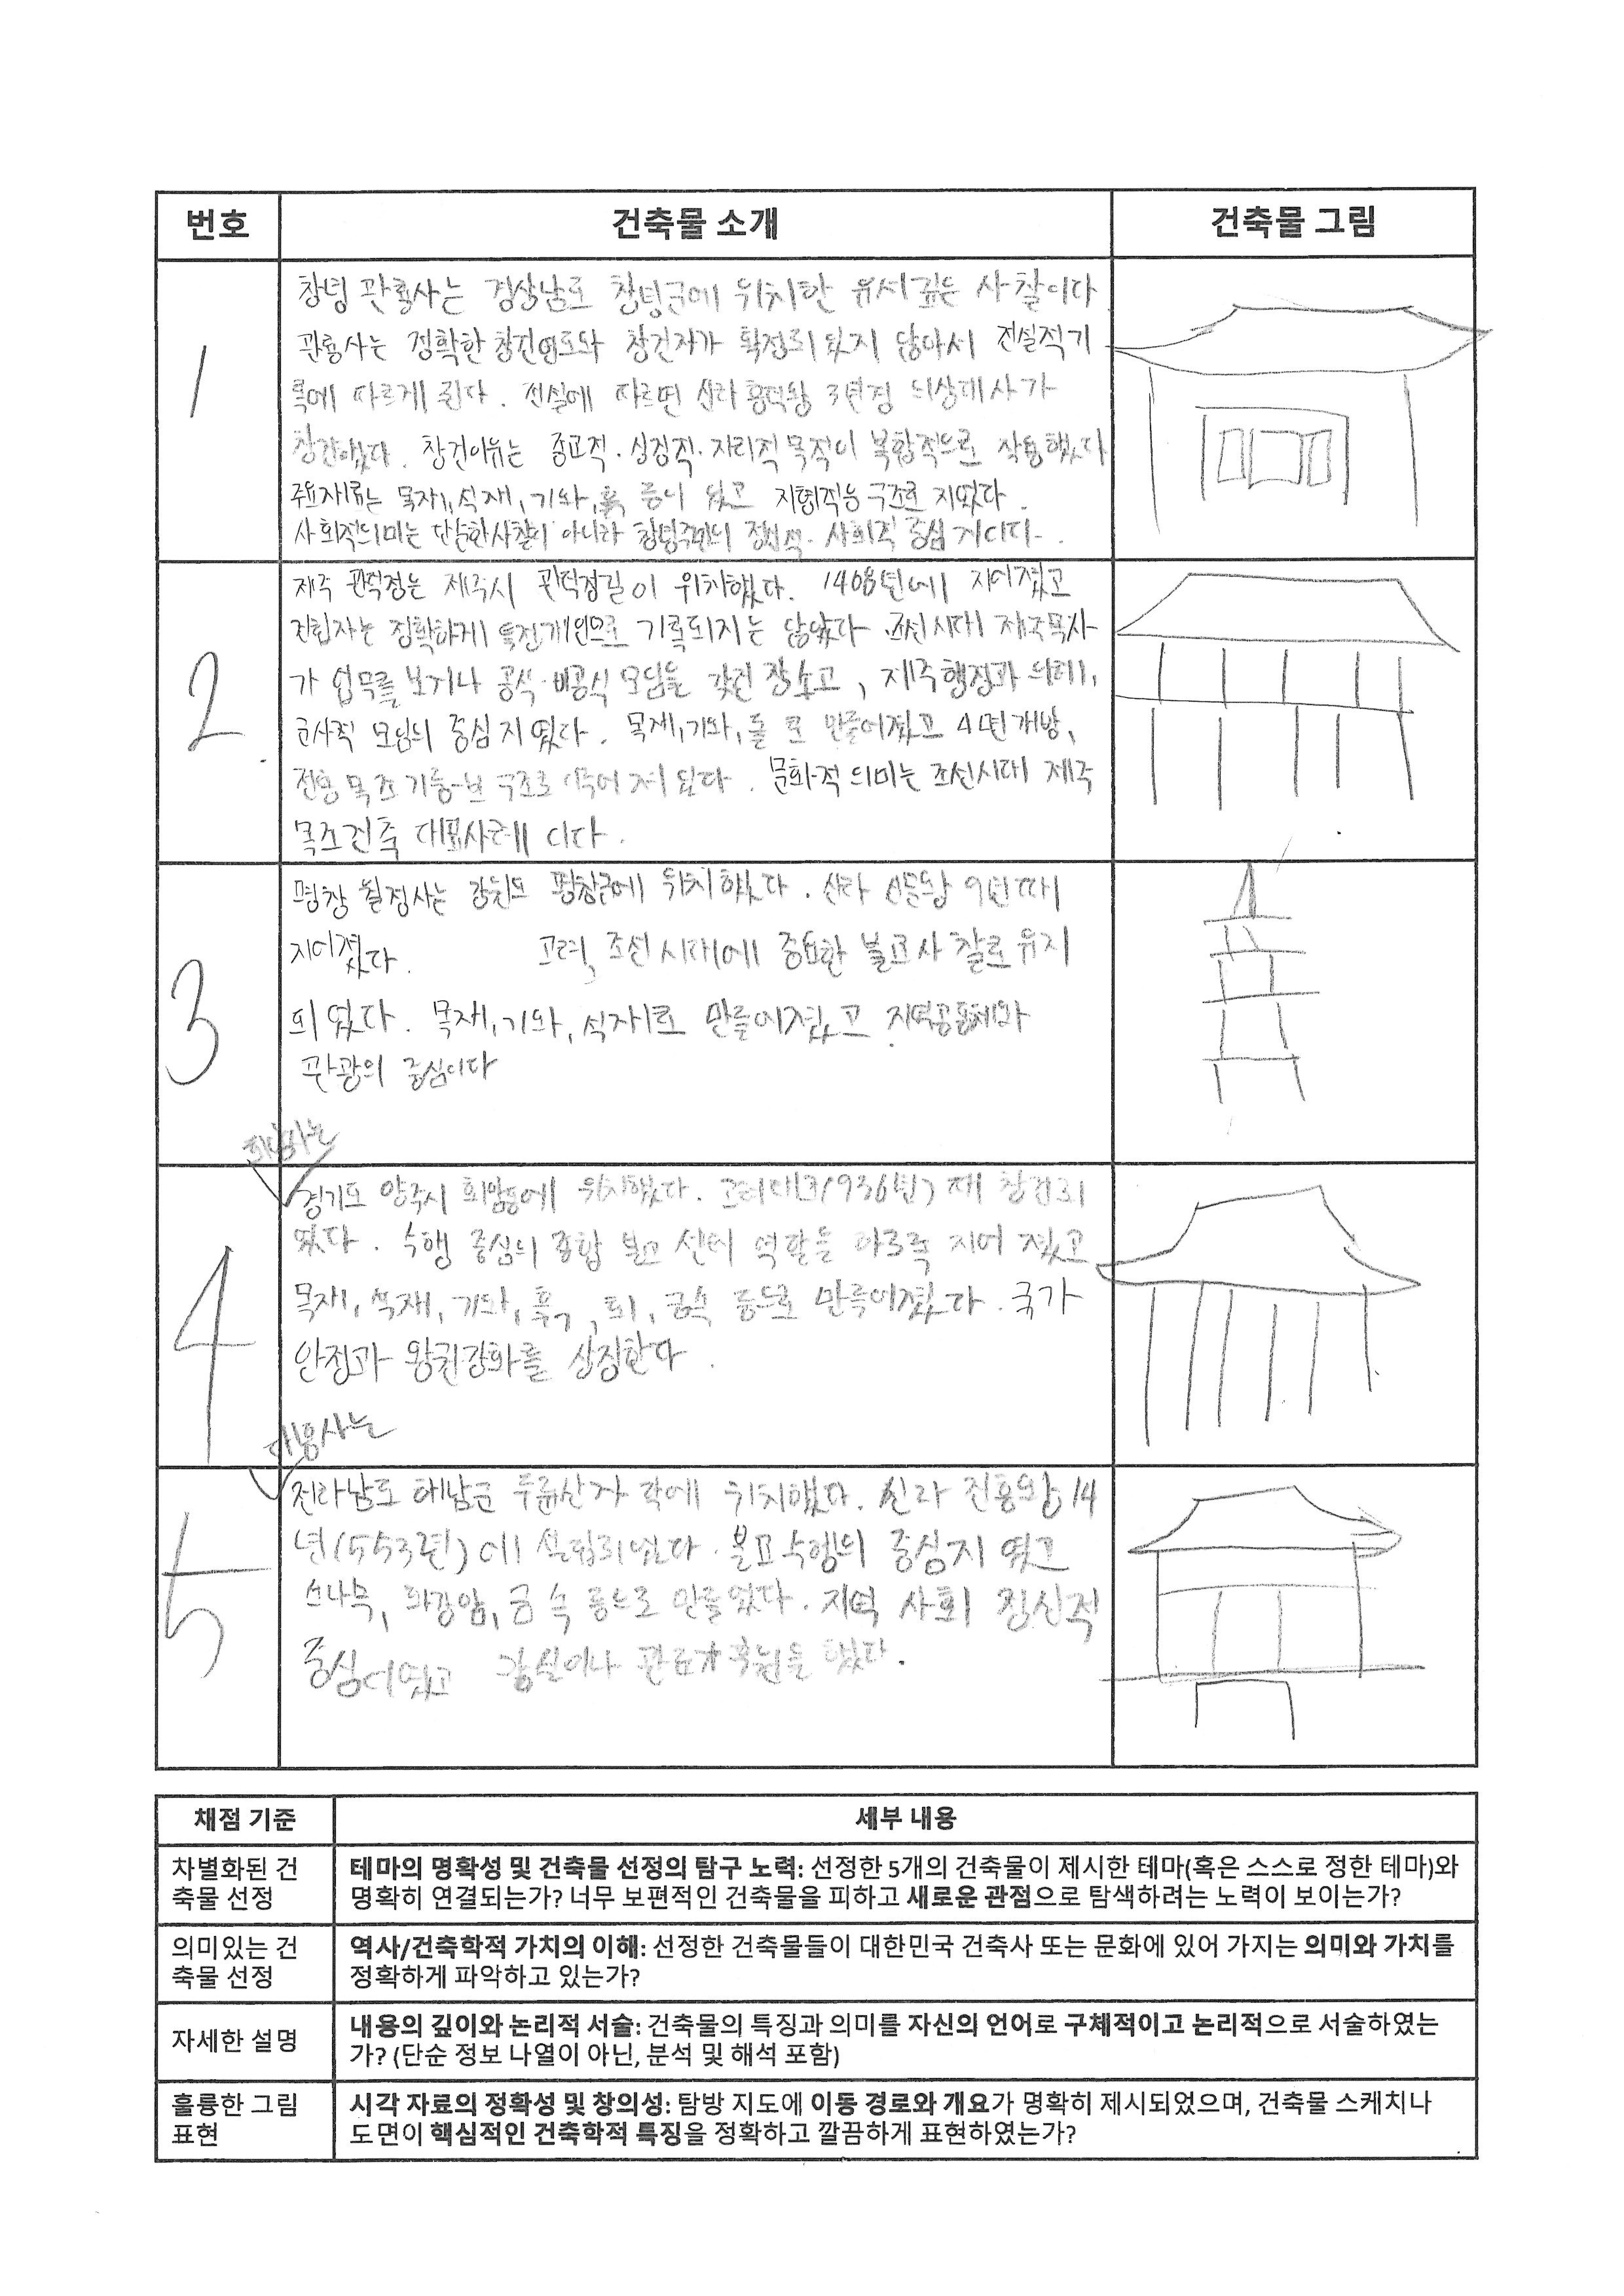 번호
건축물 소개
건축물 그림
1
창녕 관룡사는 경상남도 창녕군에 위치한 유서깊은 사찰이다
관룡사는 정확한 창건연도와 창건자가 확정되 있지 않아서 전설적기
록에 따르게 된다. 전설에 따르면 신라 흥덕왕 3년경 의상대사가
창건했다. 창건이유는 종교적·상징적·지리적 목적이 복합적으로 작용했다
주요재료는 목재, 석재, 기와, 흙 등이 있고 지형적응 구조로 지었다.
사회적의미는 단순한사찰이 아니라 창녕주민의 정신적·사회적 중심 지이다.
2
제주 관덕정는 제주시 관덕정길이 위치했다. 1408년에 지어졌고
건립자는 정확하게 특정개인으로 기록되지는 않았다 조선시대 제주목사
가 업무를 보거나 공식·비공식 모임을 갖던 장소고, 제주행정과 의례,
군사적 모임의 중심 지였다. 목재,기와,돌 로 만들어졌고 4면개방,
전통 목조 기둥-보 구조로 지어 있다. 문화적 의미는 조선시대 제주
목조건축 대표사례 이다.
3
평창 월정사는 강원도 평창군에 위치했다. 신라 선덕왕 9년때
지어졌다. 고려, 조선시대에 중요한 불교사 찰로 유지
되 었다. 목재,기와,석재로 만들어졌고 지역공동체와
관광의 중심이다
회암사는
4
경기도 양주시 회암동에 위치했다. 고려대(936년) 때 창건되
었다. 수행 중심의 종합 불교 센터 역할을 지어 졌고
목재, 석재, 기와, 흙, 금속 등으로 만들어졌다. 국가
안정과 왕권강화를 상징한다.
대흥사는
5
전라남도 해남군 두륜산자 락에 위치했다. 신라 진흥왕 14
년(553년)에 설립되었다. 불교수행의 중심지 였고
소나무, 화강암, 금 속 등으로 만들었다. 지역 사회 정신적
중심이였고 했다.
채점 기준
세부 내용
차별화된 건
축물 선정
테마의 명확성 및 건축물 선정의 탐구 노력: 선정한 5개의 건축물이 제시한 테마(혹은 스스로 정한 테마)와
명확히 연결되는가? 너무 보편적인 건축물을 피하고 새로운 관점으로 탐색하려는 노력이 보이는가?
의미있는 건
축물 선정
역사/건축학적 가치의 이해: 선정한 건축물들이 대한민국 건축사 또는 문화에 있어 가지는 의미와 가치를
정확하게 파악하고 있는가?
자세한 설명
내용의 깊이와 논리적 서술: 건축물의 특징과 의미를 자신의 언어로 구체적이고 논리적으로 서술하였는
가? (단순 정보 나열이 아닌, 분석 및 해석 포함)
훌륭한 그림
표현
시각 자료의 정확성 및 창의성: 탐방 지도에 이동 경로와 개요가 명확히 제시되었으며, 건축물 스케치나
도면이 핵심적인 건축학적 특징을 정확하고 깔끔하게 표현하였는가?